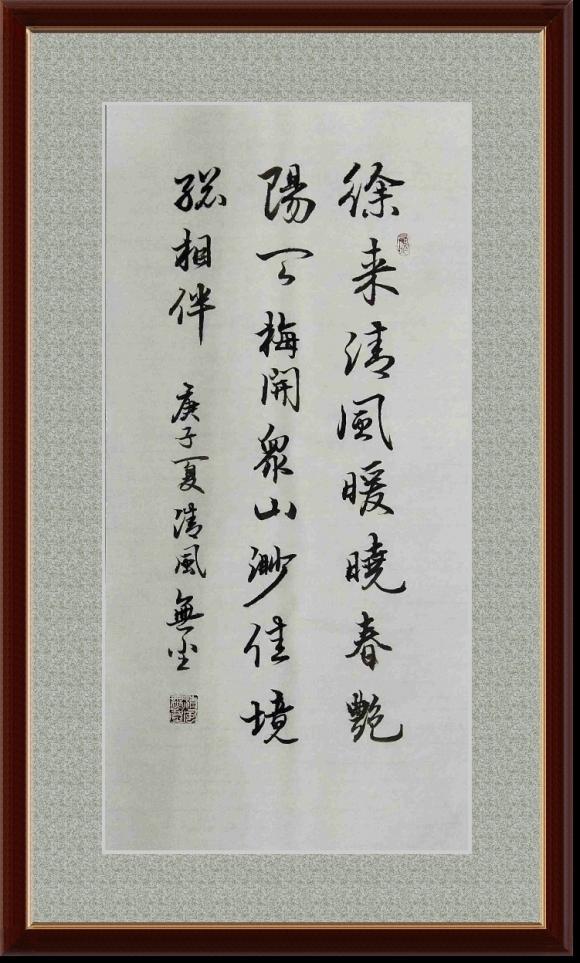 徐来清風暖曉春艷
陽天梅開眾山渺佳境
總相伴
庚子夏清風無尘